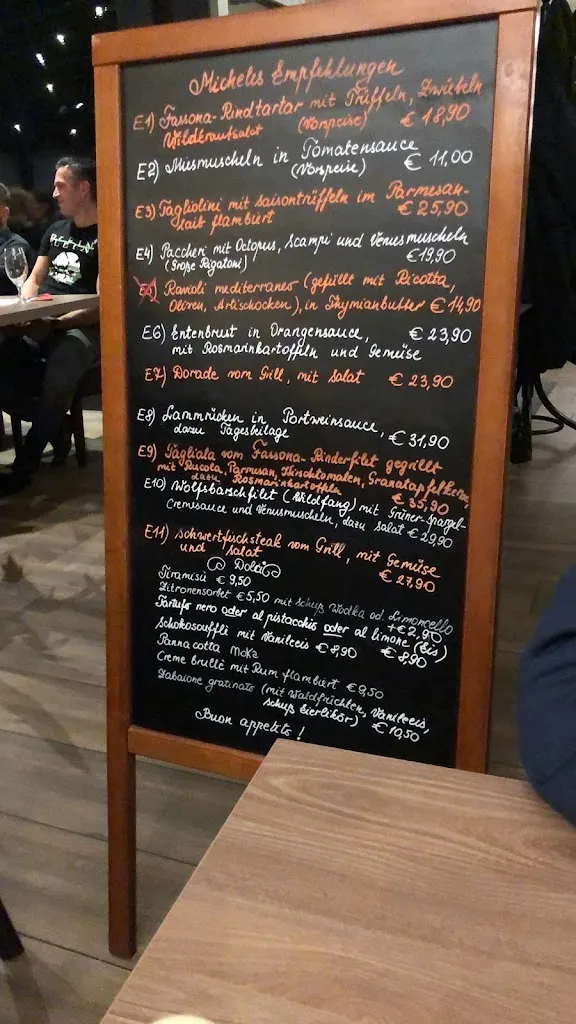 Micheles Empfehlungen
E1) Fassona-Rindtartar mit Trüffeln, Zwiebeln
Wildkrautsalat (Vorspeise) € 18,90
E2) Miesmuscheln in Tomatensauce
(Vorspeise) € 11,00
E3) Tagliolini mit Saisontrüffeln im Parmesan-
laib flambiert € 25,90
E4) Paccheri mit Octopus, Scampi und Venusmuscheln
(große Rigatoni) €19,90
E5) Ravioli mediterraner (gefüllt mit Ricotta,
Oliven, Artischocken), in Thymianbutter € 14,90
E6) Entenbrust in Orangensauce, € 23,90
mit Rosmarinkartoffeln und Gemüse
E7) Dorade vom Grill, mit Salat € 23,90
E8) Lammrücken in Portweinsauce,
dazu Tagesbeilage € 31,90
E9) Tagliata vom Fassona-Rinderfilet gegrillt
mit Rucola, Parmesan, Kirschtomaten, Granatapfelkerne,
dazu Rosmarinkartoffeln € 35,90
E10) Wolfsbarschfilet (Wildfang) mit Grüner-Spargel-
Cremesauce und Venusmuscheln, dazu Salat € 29,90
E11) Schwertfischsteak vom Grill, mit Gemüse
und Salat € 27,90
Dolci
Tiramisù € 9,50
Zitronensorbet € 5,50 mit Schuß Wodka od. Limoncello
+€ 2,90
Tartufo nero oder al pistacchio oder al limone (Eis)
€ 8,90
Schokosoufflè mit Vanilleeis € 8,90
Panna cotta
Creme brullè mit Rum flambiert € 9,50
Zabaione gratinato (mit Waldfrüchten, Vanilleeis,
Schuß Eierlikör) € 10,50
Buon appetito!